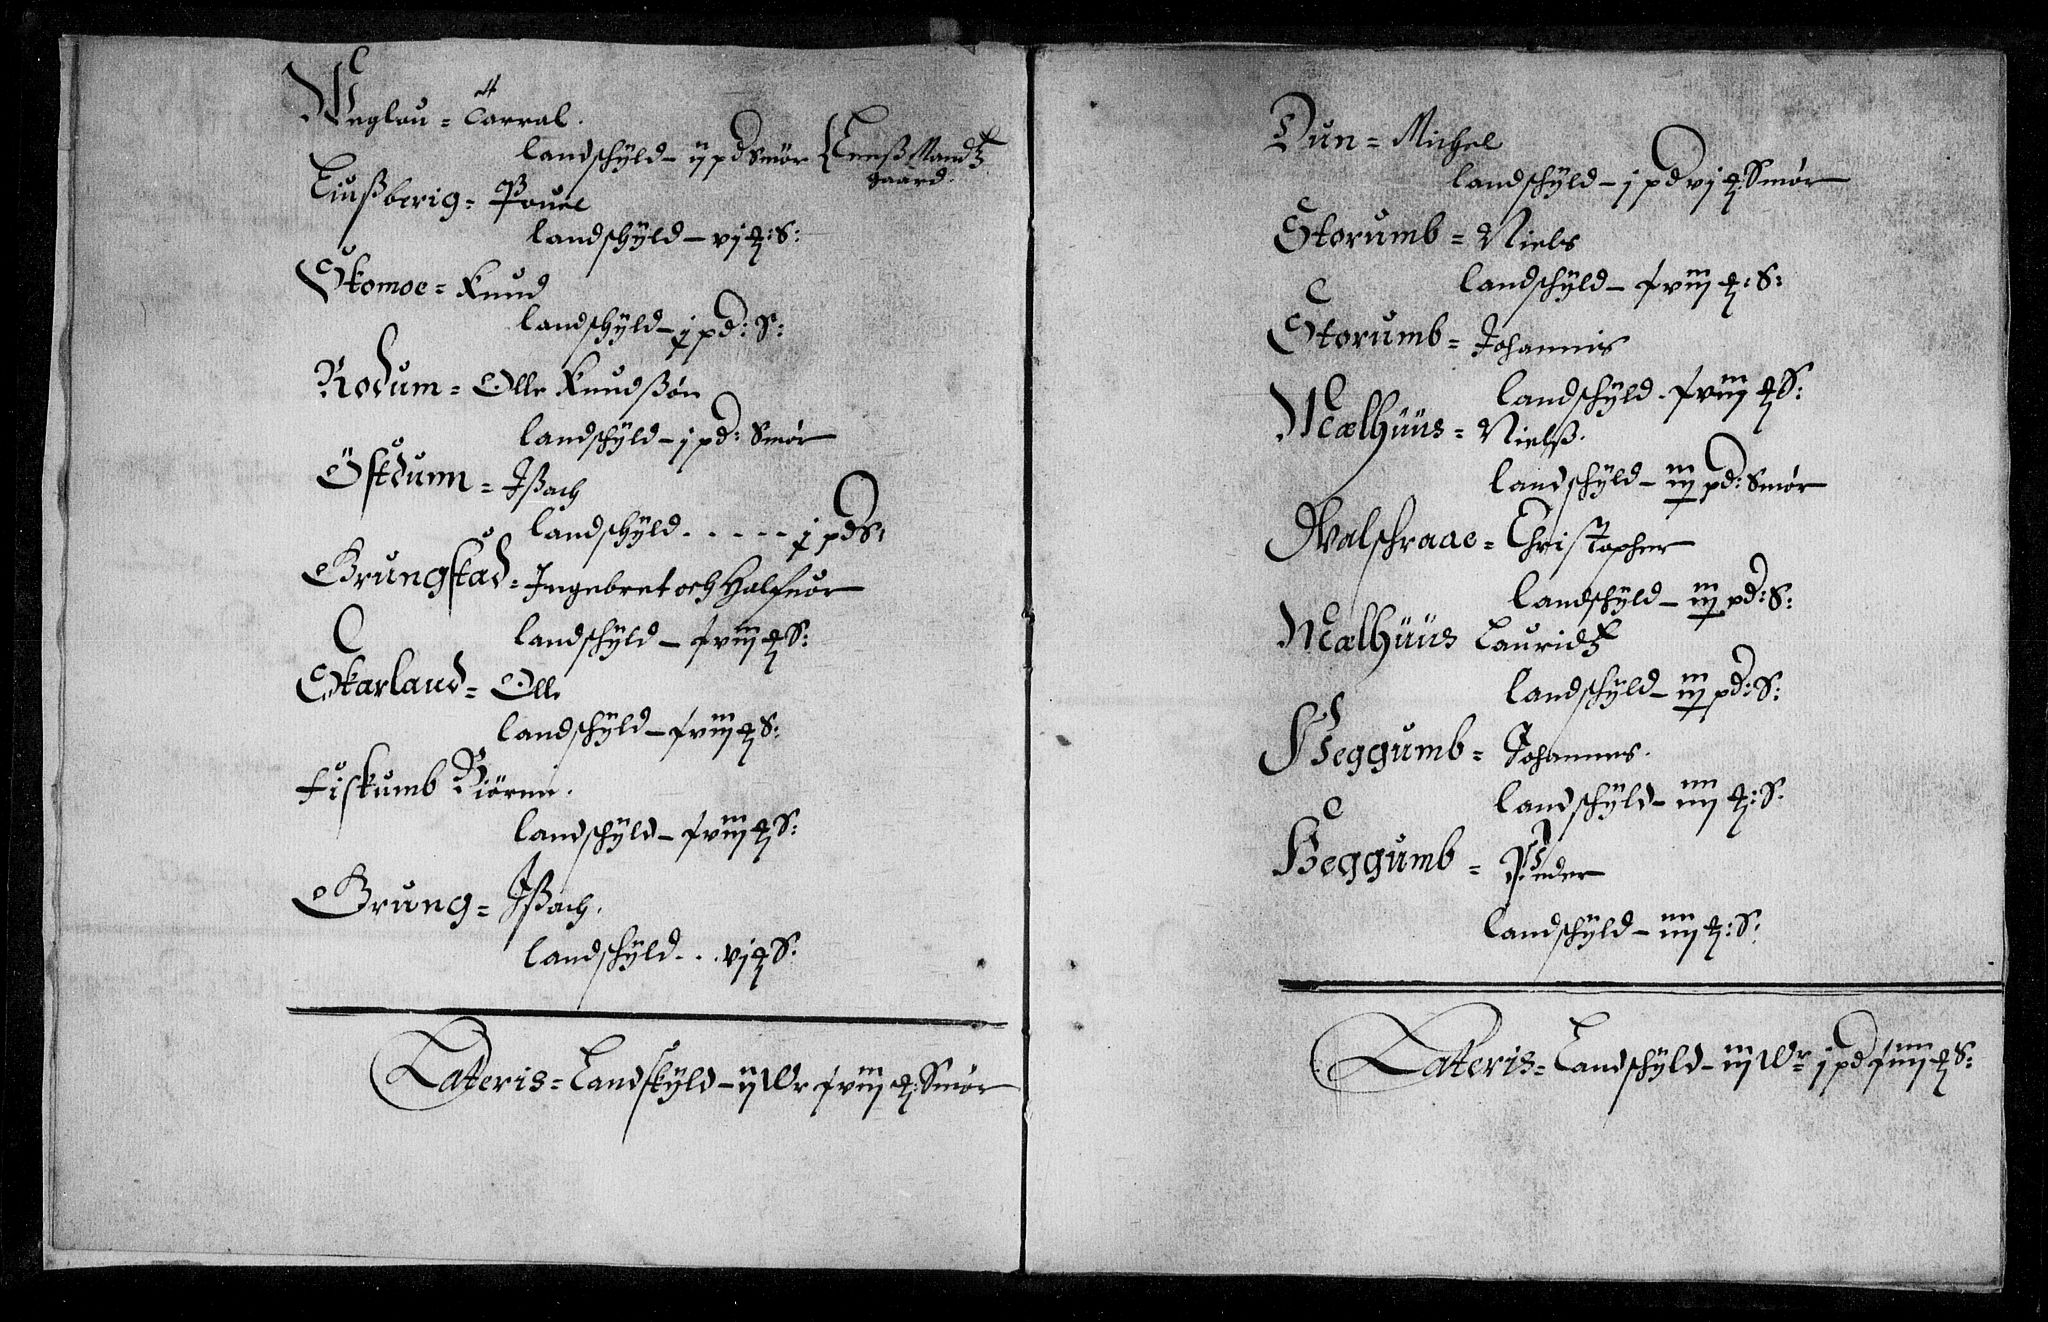 Weglou = Carral.
landschÿld – ij pd Smör Lenß Mandtz
gaard.
Liußberig = Pouel
landschÿld – vj ℔: S:
Skomoe = Knud
landschÿld – j pd: S:
Rodum = Olle Knudßön
landschÿld – j pd: Smör
Östdunn = Jßach
landschÿld . . . . . j pd S:
Grungstad = Ingebret och Halfuor
landschÿld – xviij ℔ S:
Skarland = Olle
landschÿld – xviij ℔ S:
Fiskumb Biörnn.
landschÿld – xviij ℔ S:
Grung = Jßach.
landschÿld . . . vj ℔ S:
Lateris = Landskÿld – ij Wr xviij ℔: Smör
Dun = Michel
landschÿld – j pd vj ℔ Smör
Storumb = Niels
landschÿld – xviij ℔: S:
Storumb = Johannis
landschÿld . xviij ℔ S:
Mælhüüs = Nielß.
landschÿld – iij pd: Smör
Walschraae = Christopher
landschÿld – iij pd: S:
Mælhüüs Lauridtz
landschÿld – iij pd: S:
Heggumb = Johannes.
landschÿld – iiij ℔: S:
Heggumb = Peder
landschÿld – iiij ℔: S:
Lateris = Landschÿld – iij Wr j pd xiiij ℔ S: